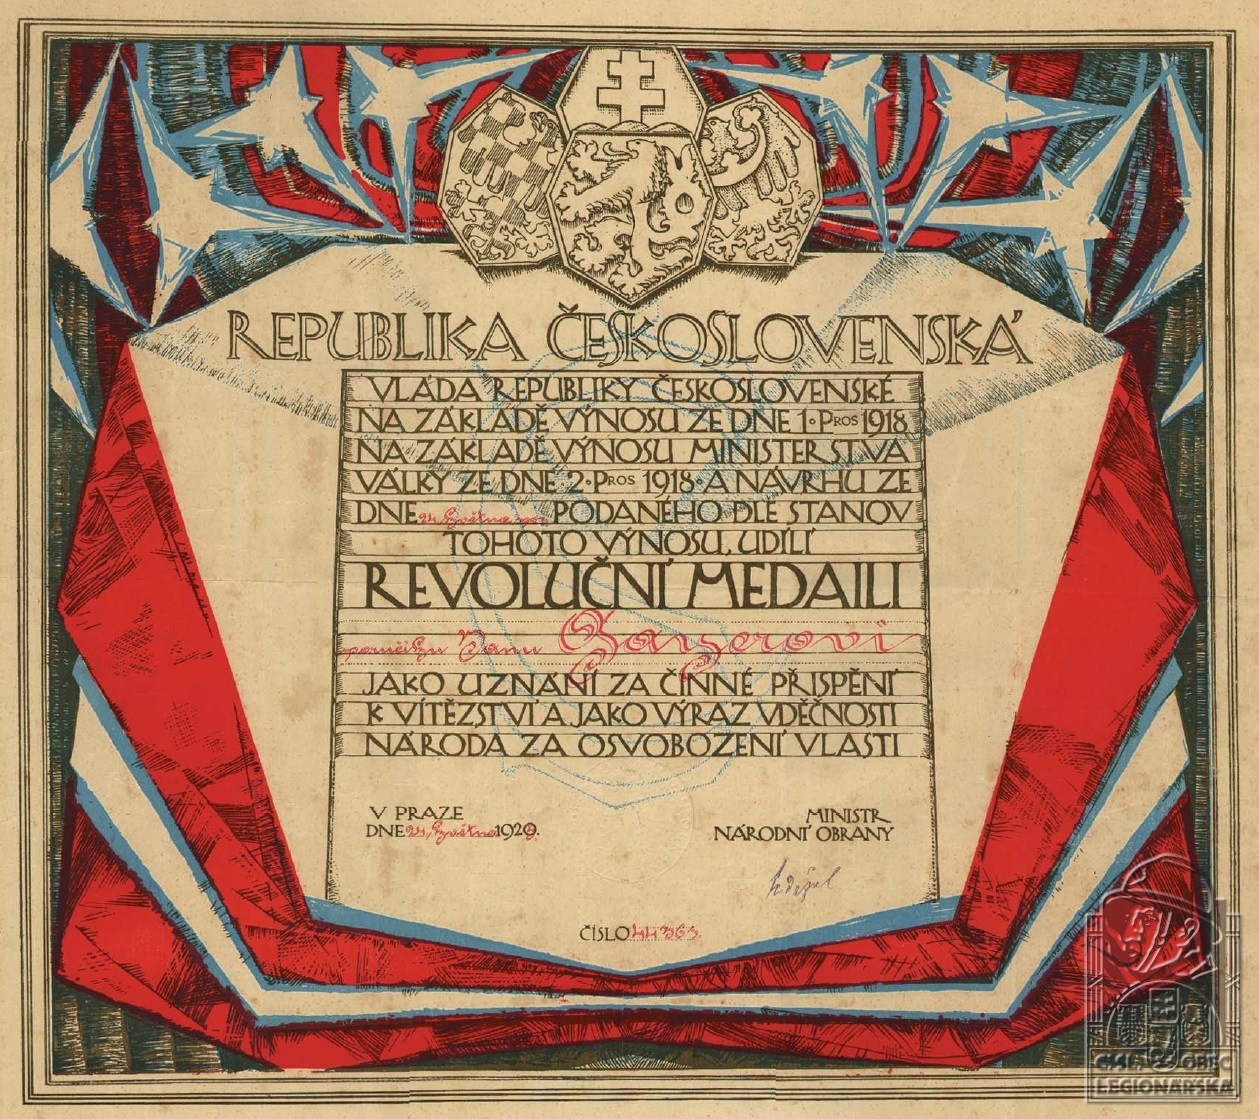 REPUBLIKA ČESKOSLOVENSKÁ
VLÁDA REPUBLIKY ČESKOSLOVENSKÉ
NA ZÁKLADĚ VÝNOSU ZE DNE 1. PROS 1918
NA ZÁKLADĚ VÝNOSU MINISTERSTVA
VÁLKY ZE DNE 2. PROS 1918. A NÁVRHU ZE
DNE 24. května PODANÉHO DLE STANOV
TOHOTO VÝNOSU, UDÍLÍ
REVOLUČNÍ MEDAILI
poručíku Janu
JAKO UZNÁNÍ ZA ČINNÉ PŘISPĚNÍ
K VÍTĚZSTVÍ A JAKO VÝRAZ VDĚČNOSTI
NÁRODA ZA OSVOBOZENÍ VLASTI
V PRAZE
DNE 24. května 192
MINISTR
NÁRODNÍ OBRANY
ČÍSLO
ČSL. OBEC
LEGIONÁŘSKÁ